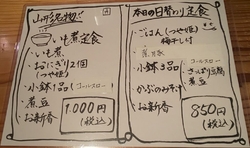 山形名物!!
いも煮定食
・いも煮
・おにぎり2個
(つや姫)
・小鉢1品(コールスロー)
・煮豆
・お新香
1.000円
(税込)
本日の日替り定食
・ごはん(つや姫)
梅干し付
・小鉢3品
コールスロー
煮豆
・かぶのみそ汁
・お新香
850円
(税込)